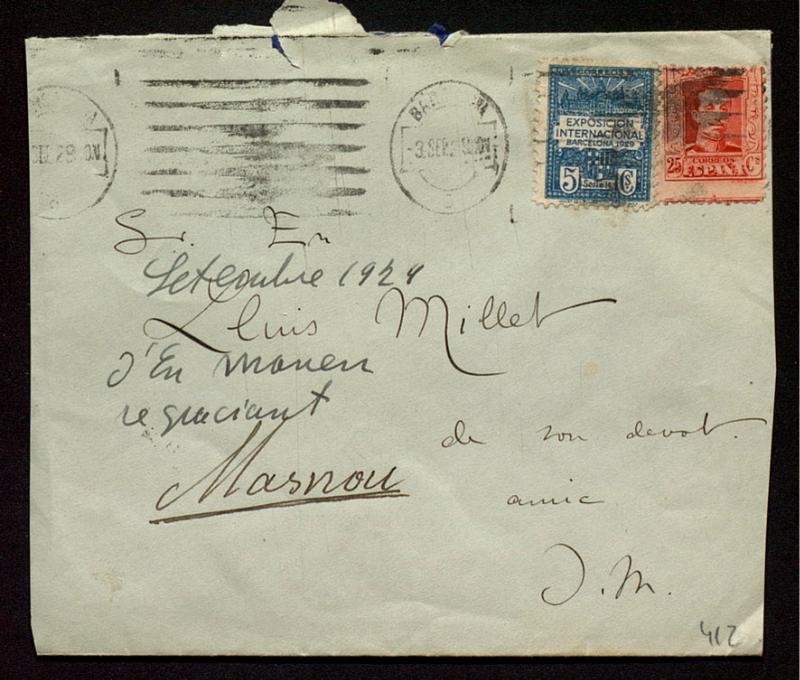 BARCELONA
-3.SEP.
CORREOS
EXPOSICIÓN
INTERNACIONAL
BARCELONA 1929
5 Cs
25 CORREOS Cs
ESPAÑA
Sr. En
Setembre 1929
Lluis Millet
d'En Manen
regraciant
Masnou
de son devot
amic
J. M.
412